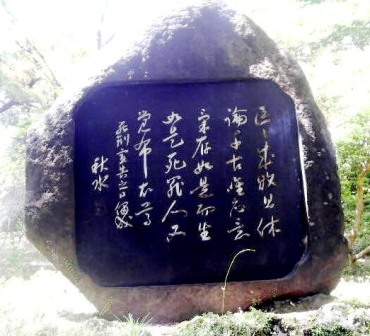 区々成敗且休
論千古唯応意
気存如是而生
如是死罪人又
覚布衣尊
死刑宣告之日偶成
秋水